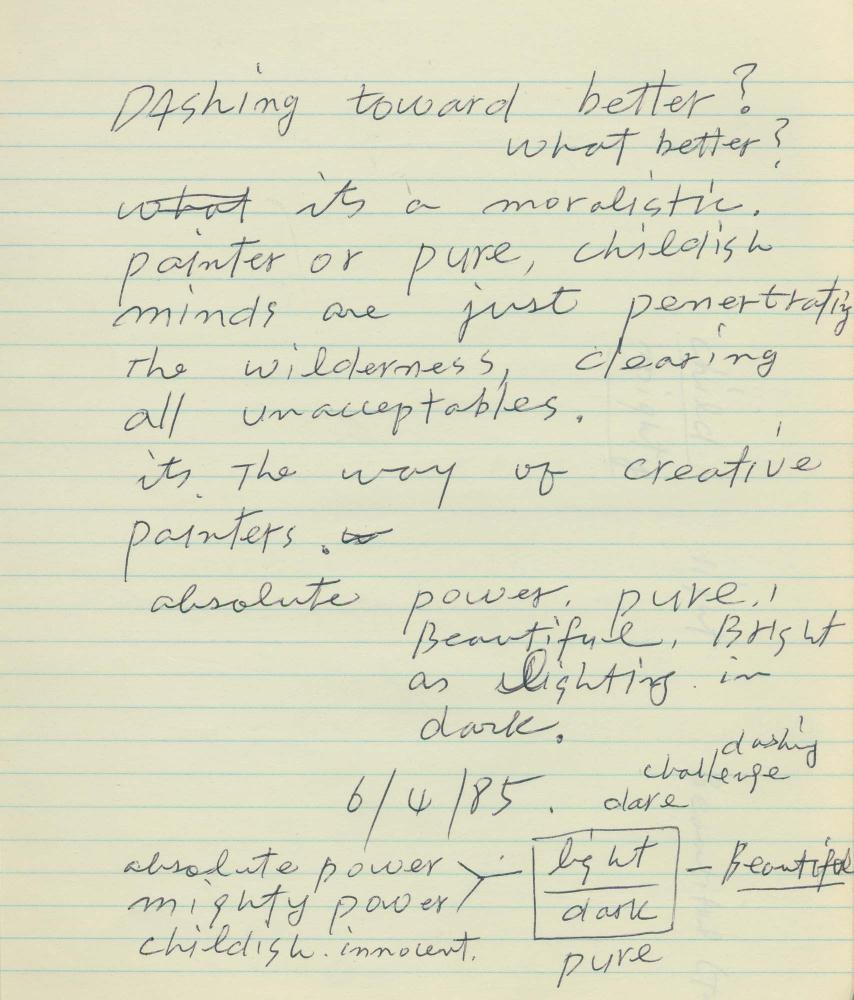 DAshing toward better?
what better?
what its a moralistic.
painter or pure, childish
minds are just penertrating
The wilderness, clearing
all unacceptables.
its The way of creative
painters.
absolute power. pure.
Beautiful. Bright
as lighting in
dark.
6/4/85. dare challenge dashing
absolute power
mighty power
childish. innocent.
light
dark
pure
- Beautiful